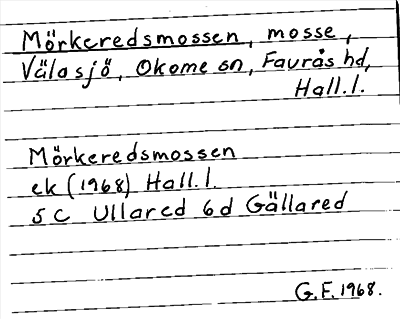 Mörkeredsmossen, mosse,
Välasjö, Okome sn, Faurås hd,
Hall.l.
Mörkeredsmossen
ek (1968) Hall.l.
5C Ullared 6d Gällared
G.F. 1968.